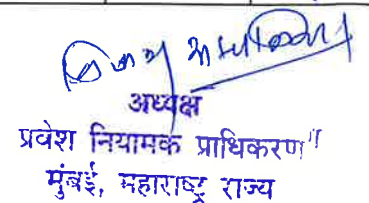 अध्यक्ष
प्रवेश नियामक प्राधिकरण"
मुंबई, महाराष्ट्र राज्य